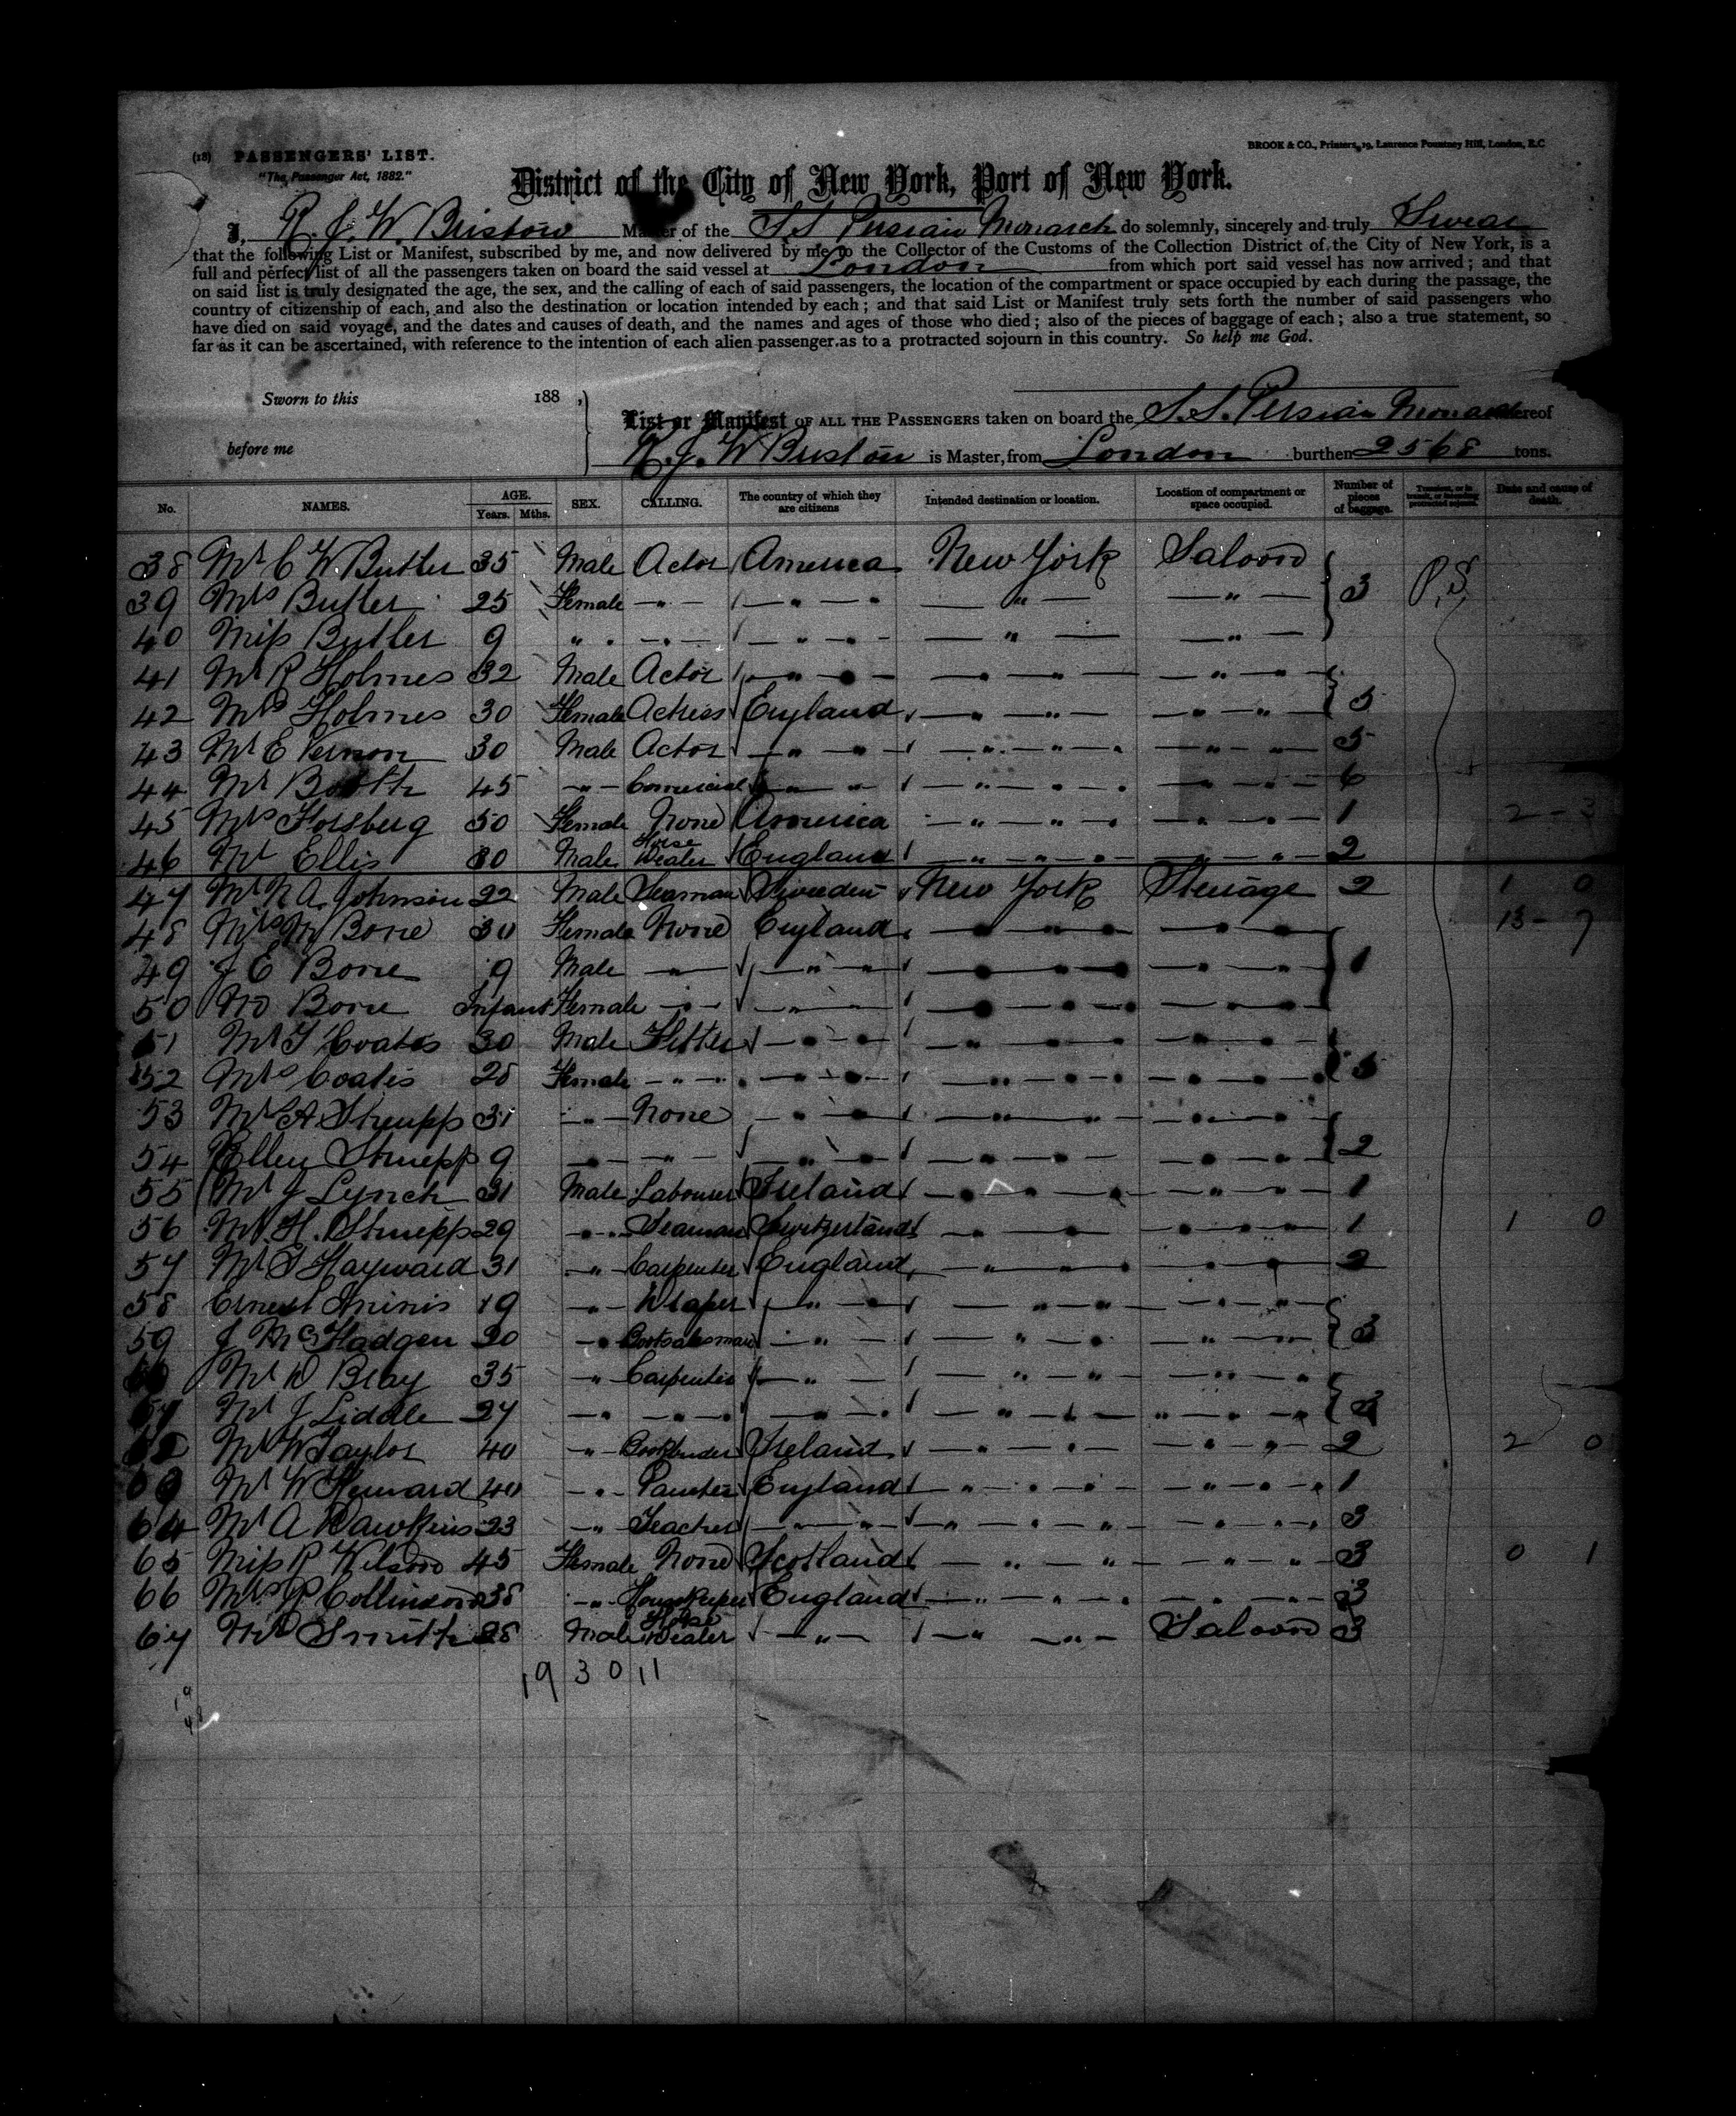 (18) PASSENGERS' LIST.
"The Passenger Act, 1882."
BROOK & CO., Printers, 19, Laurence Pountney Hill, London, E.C
District of the City of New York, Port of New York.
I, R. J. W. Bristow Master of the S S Persian Monarch do solemnly, sincerely and truly Swear
that the following List or Manifest, subscribed by me, and now delivered by me to the Collector of the Customs of the Collection District of the City of New York, is a
full and perfect list of all the passengers taken on board the said vessel at London from which port said vessel has now arrived; and that
on said list is truly designated the age, the sex, and the calling of each of said passengers, the location of the compartment or space occupied by each during the passage, the
country of citizenship of each, and also the destination or location intended by each; and that said List or Manifest truly sets forth the number of said passengers who
have died on said voyage, and the dates and causes of death, and the names and ages of those who died; also of the pieces of baggage of each; also a true statement, so
far as it can be ascertained, with reference to the intention of each alien passenger as to a protracted sojourn in this country. So help me God.
Sworn to this 188 ,
before me
List or Manifest OF ALL THE PASSENGERS taken on board the S.S. Persian Monarch whereof
R. J. W Bristow is Master, from London burthen 2568 tons.
No. NAMES. AGE. Years. Mths. SEX. CALLING. The country of which they are citizens Intended destination or location. Location of compartment or space occupied. Number of pieces of baggage. Transient, or in transit, or intending protracted sojourn. Date and cause of death.
38 Mr C W Butler 35 Male Actor America New York Saloon
39 Mrs Butler 25 Female — " — — " — — " — — " — 3 P.S.
40 Miss Butler 9 " — " — — " — — " — — " —
41 Mr R Holmes 32 Male Actor — " — — " — — " —
42 Mrs Holmes 30 Female Actress England — " — — " — 5
43 Mr E Vernon 30 Male Actor — " — — " — — " — 5
44 Mr Booth 45 — " — Comercial — " — — " — — " — 6
45 Mrs Forsberg 50 Female None America — " — — " — 1 2 - 3
46 Mr Ellis 30 Male Horse Dealer England — " — — " — 2
47 Mr N A. Johnson 22 Male Seaman Sweeden New York Steerage 2 1 0
48 Mrs M Bone 30 Female None England — " — — " — 13 - 7
49 J E Bone 9 Male — " — — " — — " — — " — 1
50 M Bone Infant Female — " — — " — — " — — " —
51 Mr T Coates 30 Male Fitter — " — — " — — " —
52 Mrs Coates 28 Female — " — — " — — " — — " —
53 A 31 — " — None — " — — " — — " —
54 Ellen 9 — " — — " — — " — — " — — " — 2
55 Mr J Lynch 31 Male Labourer Ireland — " — — " — 1
56 Mr H. 29 — " — Seaman Switzerland — " — — " — 1 1 0
57 Mr T Hayward 31 — " — Carpenter England — " — — " — 2
58 Ernest 19 — " — Draper — " — — " — — " —
59 J 20 — " — — " — — " — — " — 3
Mr Bray 35 — " — Carpenter — " — — " — — " —
Mr J Liddle 27 — " — — " — — " — — " — — " —
Mr W Taylor 40 — " — Bookbinder Ireland — " — — " — 2 2 0
Mr W 40 — " — Painter England — " — — " — 1
64 Mr A Dawkins 23 — " — Teacher — " — — " — — " — 3
65 Miss R Wilson 45 Female None Scotland — " — — " — 3 0 1
66 Mrs Collinson 38 — " — Housekeeper England — " — — " — 3
67 Mr Smith 28 Male Horse Dealer — " — — " — Saloon 3
19 30 11